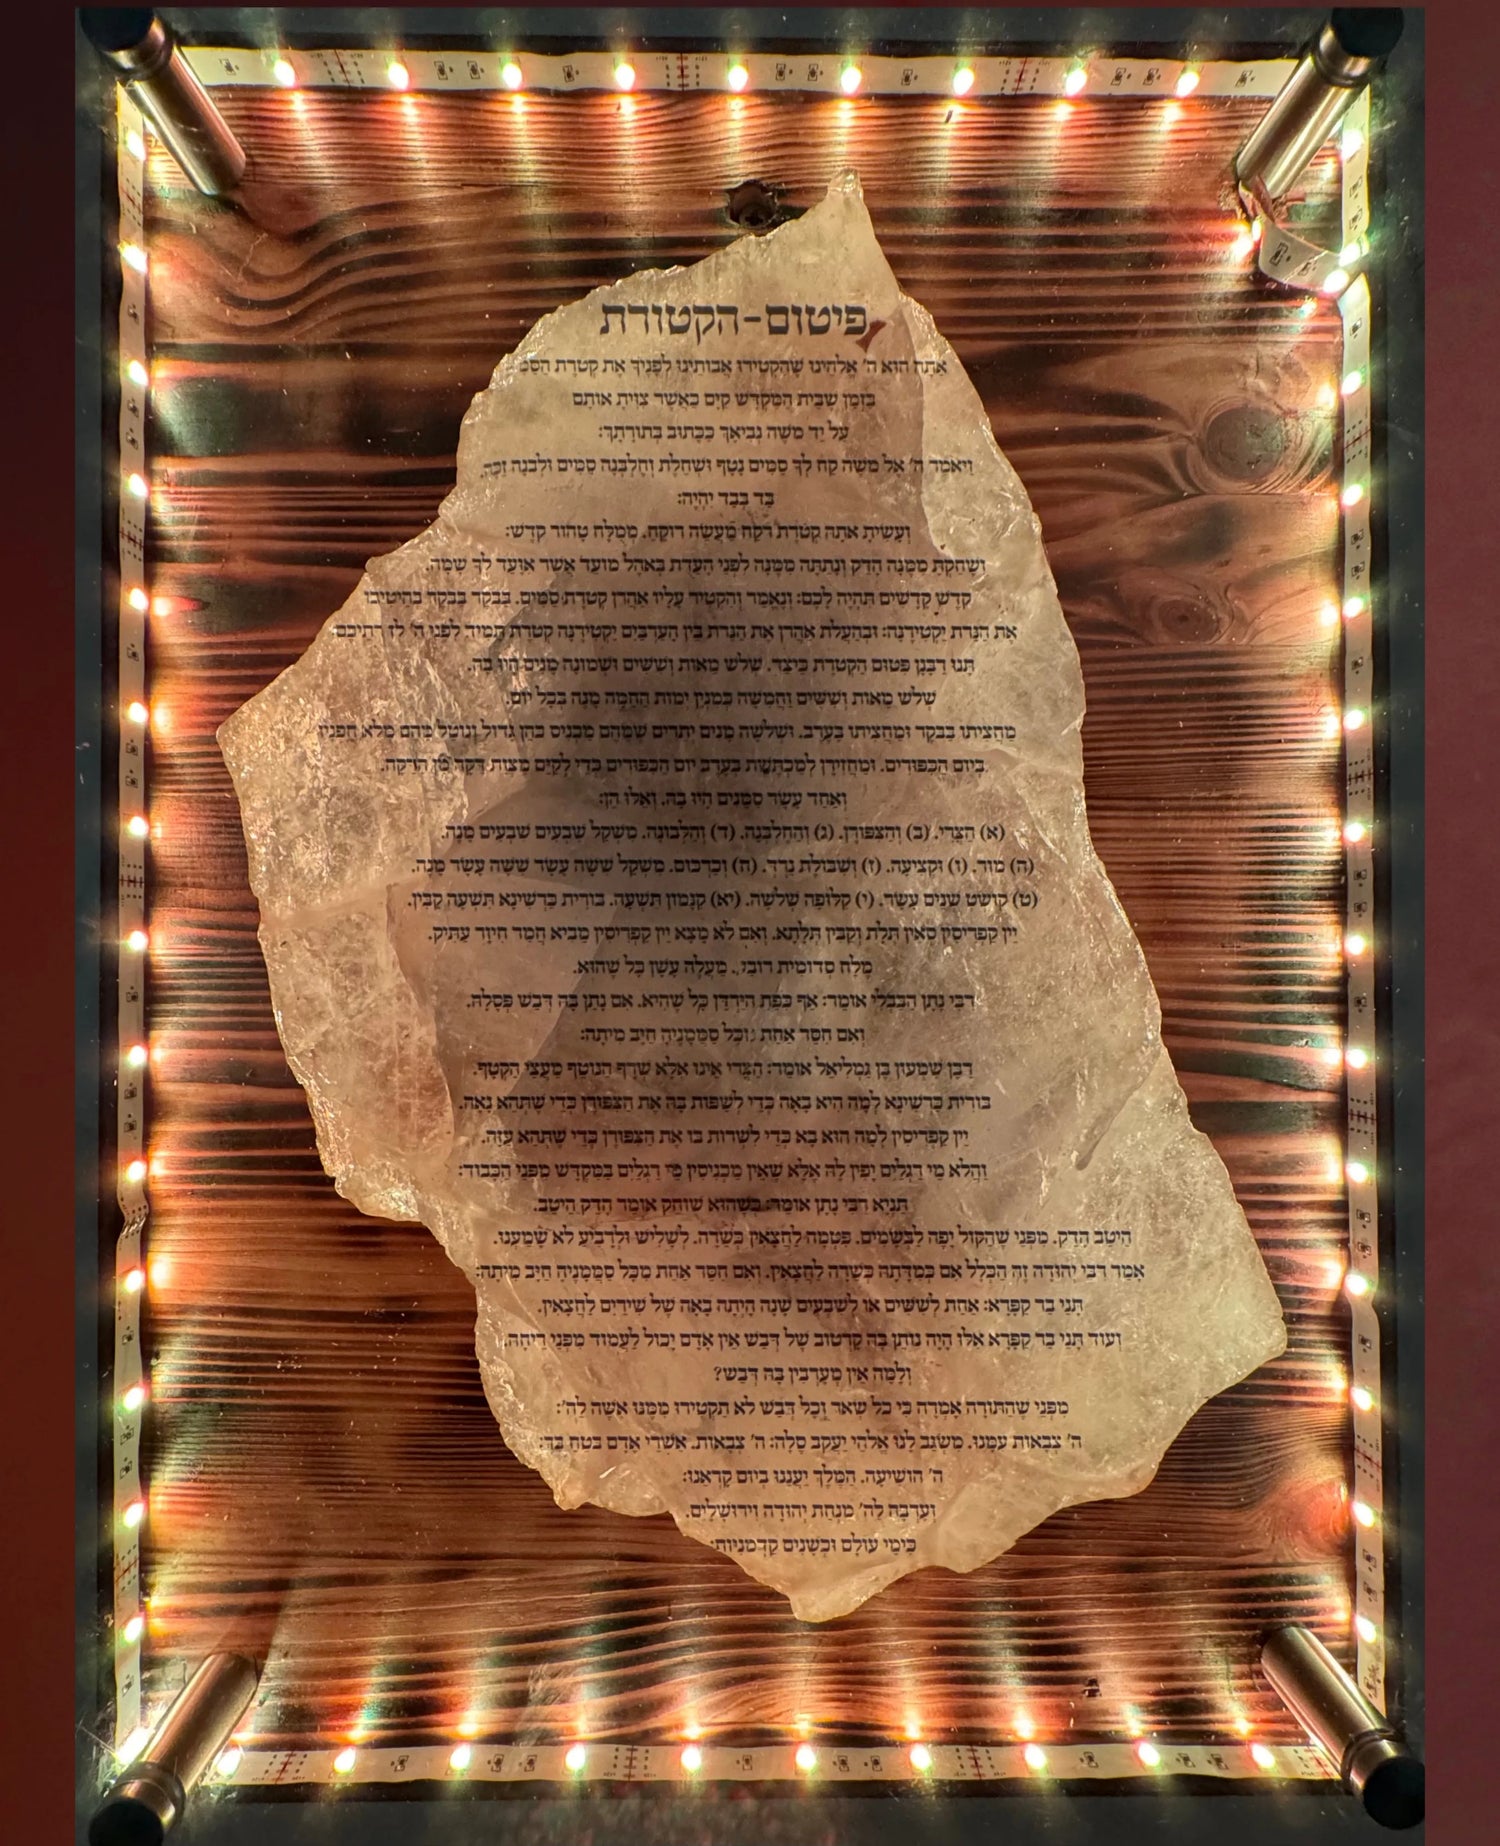 פיטום-הקטורת
אַתָּה הוּא ה' אֱלֹהֵינוּ שֶׁהִקְטִירוּ אֲבוֹתֵינוּ לְפָנֶיךָ אֶת קְטֹרֶת
בִּזְמַן שֶׁבֵּית הַמִּקְדָּשׁ קַיָּם כַּאֲשֶׁר צִוִּיתָ אוֹתָם
עַל יַד מֹשֶׁה נְבִיאָךְ כַּכָּתוּב בְּתוֹרָתָךְ:
וַיֹּאמֶר ה' אֶל מֹשֶׁה קַח לְךָ סַמִּים נָטָף וּשְׁחֵלֶת וְחֶלְבְּנָה סַמִּים וּלְבֹנָה זַכָּה
בַּד בְּבַד יִהְיֶה:
וְעָשִׂיתָ אֹתָהּ קְטֹרֶת רֹקַח מַעֲשֵׂה רוֹקֵחַ. מְמֻלָּח טָהוֹר קֹדֶשׁ:
וְשָׁחַקְתָּ מִמֶּנָּה הָדֵק וְנָתַתָּה מִמֶּנָּה לִפְנֵי הָעֵדֻת בְּאֹהֶל מוֹעֵד אֲשֶׁר אִוָּעֵד לְךָ שָׁמָּה.
קֹדֶשׁ קָדָשִׁים תִּהְיֶה לָכֶם: וְנֶאֱמַר וְהִקְטִיר עָלָיו אַהֲרֹן קְטֹרֶת סַמִּים. בַּבֹּקֶר בַּבֹּקֶר בְּהֵיטִיבוֹ
אֶת הַנֵּרֹת יַקְטִירֶנָּה: וּבְהַעֲלֹת אַהֲרֹן אֶת הַנֵּרֹת בֵּין הָעַרְבַּיִם יַקְטִירֶנָּה קְטֹרֶת תָּמִיד לִפְנֵי ה'
תָּנוּ רַבָּנָן פִּטּוּם הַקְּטֹרֶת כֵּיצַד. שְׁלֹשׁ מֵאוֹת וְשִׁשִּׁים וּשְׁמוֹנָה מָנִים הָיוּ בָהּ.
שְׁלֹשׁ מֵאוֹת וְשִׁשִּׁים וַחֲמִשָּׁה כְּמִנְיַן יְמוֹת הַחַמָּה מָנֶה בְּכָל יוֹם.
מַחֲצִיתוֹ בַּבֹּקֶר וּמַחֲצִיתוֹ בָּעֶרֶב. וּשְׁלֹשָׁה מָנִים יְתֵרִים שֶׁמֵּהֶם מַכְנִיס כֹּהֵן גָּדוֹל וְנוֹטֵל מֵהֶם מְלֹא חָפְנָיו
בְּיוֹם הַכִּפּוּרִים. וּמַחֲזִירָן לְמַכְתֶּשֶׁת בְּעֶרֶב יוֹם הַכִּפּוּרִים כְּדֵי לְקַיֵּם מִצְוַת דַּקָּה מִן הַדַּקָּה.
וְאַחַד עָשָׂר סַמָּנִים הָיוּ בָהּ. וְאֵלּוּ הֵן:
(א) הַצֳּרִי. (ב) וְהַצִּפּוֹרֶן. (ג) וְהַחֶלְבְּנָה. (ד) וְהַלְּבוֹנָה. מִשְׁקַל שִׁבְעִים שִׁבְעִים מָנֶה.
(ה) מוֹר. (ו) וּקְצִיעָה. (ז) וְשִׁבּוֹלֶת נֵרְדְּ. (ח) וְכַרְכּוֹם. מִשְׁקַל שִׁשָּׁה עָשָׂר שִׁשָּׁה עָשָׂר מָנֶה.
(ט) קוֹשְׁטְ שְׁנֵים עָשָׂר. (י) קִלּוּפָה שְׁלֹשָׁה. (יא) קִנָּמוֹן תִּשְׁעָה. בּוֹרִית כַּרְשִׁינָא תִּשְׁעָה קַבִּין.
יֵין קַפְרִיסִין סְאִין תְּלָת וְקַבִּין תְּלָתָא. וְאִם לֹא מָצָא יֵין קַפְרִיסִין מֵבִיא חֲמַר חִיוָר עַתִּיק.
מֶלַח סְדוֹמִית רוֹבַע. מַעֲלֶה עָשָׁן כָּל שֶׁהוּא.
רִבִּי נָתָן הַבַּבְלִי אוֹמֵר: אַף כִּפַּת הַיַּרְדֵּן כָּל שֶׁהִיא. אִם נָתַן בָּהּ דְּבַשׁ פְּסָלָהּ.
וְאִם חִסֵּר אַחַת מִכָּל סַמְמָנֶיהָ חַיָּב מִיתָה:
רַבָּן שִׁמְעוֹן בֶּן גַּמְלִיאֵל אוֹמֵר: הַצֳּרִי אֵינוֹ אֶלָּא שְׂרָף הַנּוֹטֵף מֵעֲצֵי הַקְּטָף.
בּוֹרִית כַּרְשִׁינָא לְמָה הִיא בָאָה כְּדֵי לְשַׁפּוֹת בָּהּ אֶת הַצִּפּוֹרֶן כְּדֵי שֶׁתְּהֵא נָאָה.
יֵין קַפְרִיסִין לְמָה הוּא בָא כְּדֵי לִשְׁרוֹת בּוֹ אֶת הַצִּפּוֹרֶן כְּדֵי שֶׁתְּהֵא עַזָּה.
וַהֲלֹא מֵי רַגְלַיִם יָפִין לָהּ אֶלָּא שֶׁאֵין מַכְנִיסִין מֵי רַגְלַיִם בַּמִּקְדָּשׁ מִפְּנֵי הַכָּבוֹד:
תַּנְיָא רִבִּי נָתָן אוֹמֵר: כְּשֶׁהוּא שׁוֹחֵק אוֹמֵר הָדֵק הֵיטֵב.
הֵיטֵב הָדֵק. מִפְּנֵי שֶׁהַקּוֹל יָפֶה לַבְּשָׂמִים. פִּטְּמָהּ לַחֲצָאִין כְּשֵׁרָה. לְשָׁלִישׁ וּלְרָבִיעַ לֹא שָׁמַעְנוּ.
אָמַר רִבִּי יְהוּדָה זֶה הַכְּלָל אִם כְּמִדָּתָהּ כְּשֵׁרָה לַחֲצָאִין. וְאִם חִסֵּר אַחַת מִכָּל סַמְמָנֶיהָ חַיָּב מִיתָה:
תָּנֵי בַר קַפָּרָא: אַחַת לְשִׁשִּׁים אוֹ לְשִׁבְעִים שָׁנָה הָיְתָה בָאָה שֶׁל שִׁירַיִם לַחֲצָאִין.
וְעוֹד תָּנֵי בַר קַפָּרָא אִלּוּ הָיָה נוֹתֵן בָּהּ קָרְטוֹב שֶׁל דְּבַשׁ אֵין אָדָם יָכוֹל לַעֲמוֹד מִפְּנֵי רֵיחָהּ.
וְלָמָּה אֵין מְעָרְבִין בָּהּ דְּבַשׁ?
מִפְּנֵי שֶׁהַתּוֹרָה אָמְרָה כִּי כָל שְׂאֹר וְכָל דְּבַשׁ לֹא תַקְטִירוּ מִמֶּנּוּ אִשֶּׁה לַה':
ה' צְבָאוֹת עִמָּנוּ. מִשְׂגָּב לָנוּ אֱלֹהֵי יַעֲקֹב סֶלָה: ה' צְבָאוֹת. אַשְׁרֵי אָדָם בֹּטֵחַ בָּךְ:
ה' הוֹשִׁיעָה. הַמֶּלֶךְ יַעֲנֵנוּ בְיוֹם קָרְאֵנוּ:
וְעָרְבָה לַה' מִנְחַת יְהוּדָה וִירוּשָׁלָיִם.
כִּימֵי עוֹלָם וּכְשָׁנִים קַדְמֹנִיּוֹת: